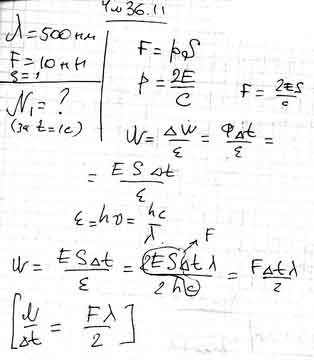 Чи 36.11
λ = 500 нм
F = 10 нН
S = 1
N₁ = ?
(за t = 1с)
F = pS
p = 2E/c
F = 2ES/c
N = ΔW/ε = ΦΔt/ε =
= E S Δt/ε
ε = hν = hc/λ
N = E S Δt/ε = 2E S Δt λ/2hc = F Δt λ/2
F
[N/Δt = Fλ/2]